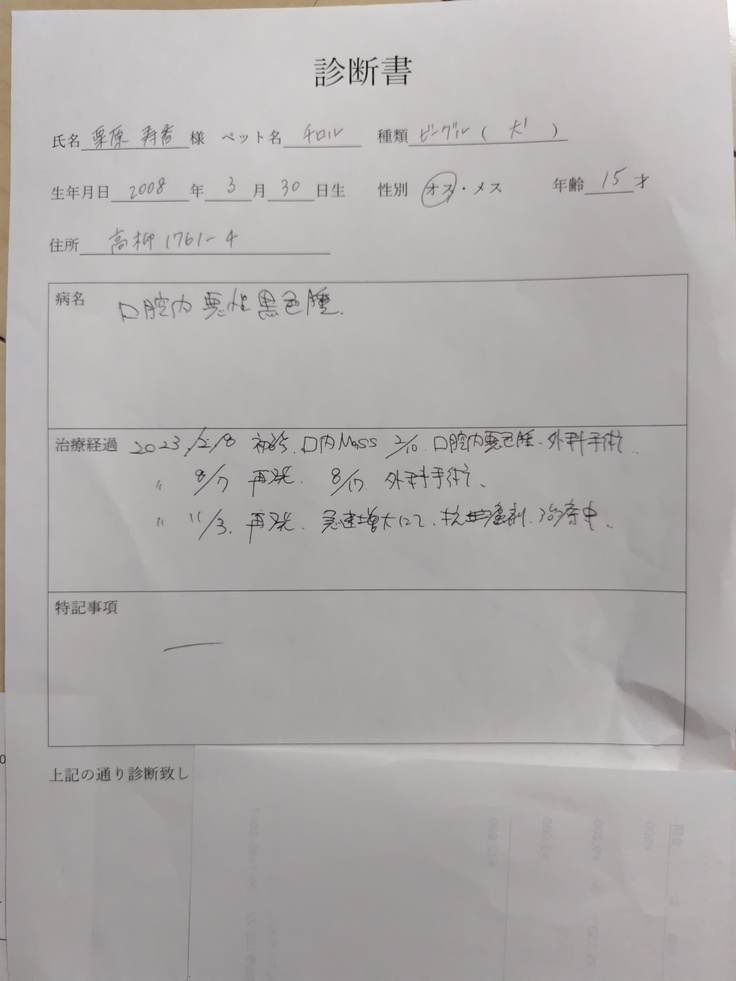 診断書
氏名 栗原 寿香 様 ペット名 チロル 種類 ビーグル ( 犬 )
生年月日 2008 年 3 月 30 日生 性別 オス・メス 年齢 15 才
住所 高柳 1761-4
病名 口腔内 悪性黒色腫.
治療経過 2023, 2/8 初診. 口内Mass 2/10. 口腔内悪性 腫. 外科手術.
〃 8/7 再発. 8/17. 外科手術.
〃 11/3. 再発. 急速増大にて. 抗 剤. 治療中.
特記事項
—
上記の通り診断致し